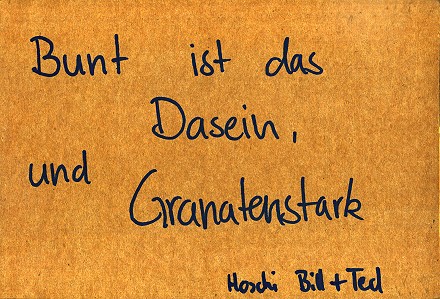 Bunt ist das
Dasein,
und Granatenstark
Hoschi Bill + Ted